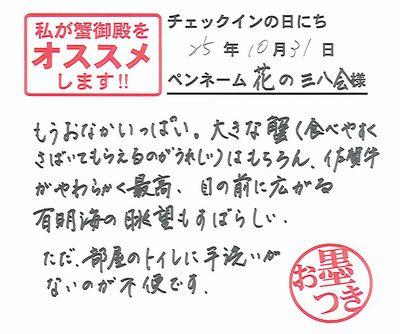 私が蟹御殿を
オススメ
します!!
チェックインの日にち
25年10月31日
ペンネーム 花の三八会様
もうおなかいっぱい。大きな蟹(食べやすく
さばいてもらえるのがうれしい)はもちろん、佐賀牛
がやわらかく最高、目の前に広がる
有明海の眺望もすばらしい。
ただ、部屋のトイレに手洗いが
ないのが不便です。
お墨つき